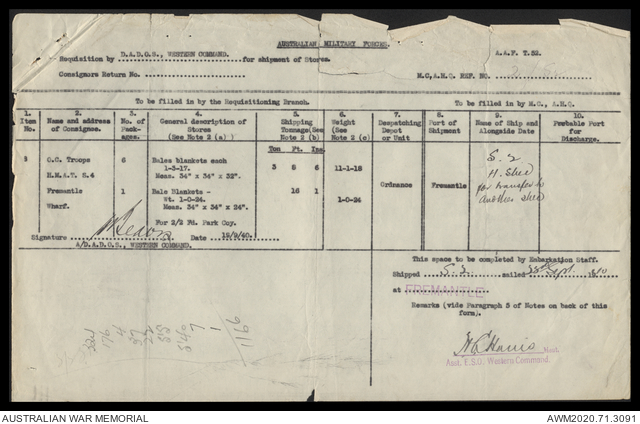 AUSTRALIAN MILITARY FORCES.
Requisition by D.A.D.O.S., WESTERN COMMAND. for shipment of Stores.
A.A.F. T.52.
Consignors Return No.
M.C,A.H.Q REF. NO.
To be filled in by the Requisitioning Branch.
To be filled in by M.C., A.H.Q.
1. Item No.
2. Name and address of Consignee.
3. No. of Pack- ages.
4. General description of Stores (See Note 2 (a) )
5. Shipping Tonnage(See Note 2 (b)
6. Weight (See Note 2 (c)
7. Despatching Depot or Unit
8. Port of Shipment
9. Name of Ship and Alongside Date
10. Probable Port for Discharge.
Ton Ft. Ins.
O.C. Troops 6 Bales blankets each 3 5 6 11-1-18 S. 2
1-3-17. H. Shed
H.M.A.T. S.4 Meas. 34" x 34" x 32". for transfer to
Fremantle 1 Bale Blankets - 16 1 Ordnance Fremantle another shed
Wharf. Wt. 1-0-24. 1-0-24
Meas. 34" x 34" x 24".
For 2/2 Fd. Park Coy.
Signature Date 12/9/40.
A/D.A.D.O.S., WESTERN COMMAND.
This space to be completed by Embarkation Staff.
Shipped S. 2. sailed Sept 1940
at FREMANTLE
Remarks (vide Paragraph 5 of Notes on back of
form).
324
176
4
37
22
53
546
7
1
1166
Harris Lieut.
Asst. E.S.O. Western Command.
AUSTRALIAN WAR MEMORIAL
AWM2020.71.3091